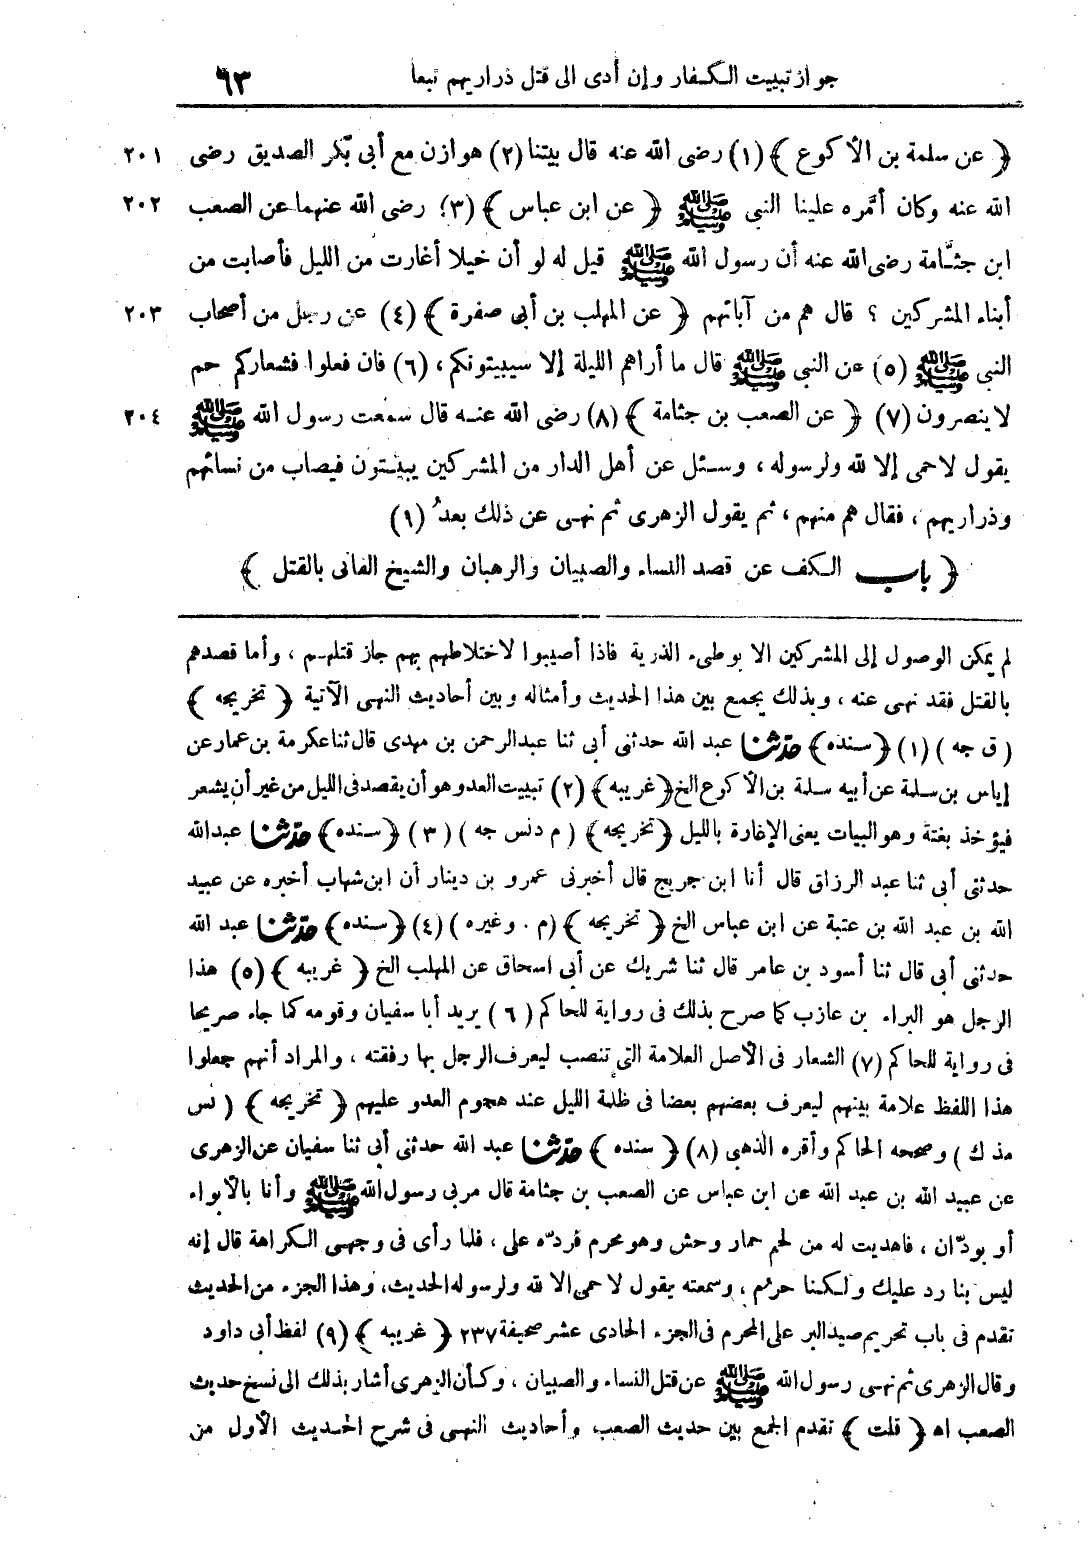 جواز تبييت الكفار وإن أدى الى قتل ذراريهم تبعا ٦٣
﴿ عن سلمة بن الأكوع ﴾ (١) رضى الله عنه قال بيتنا (٢) هوازن مع أبى بكر الصديق رضى ٢٠١
الله عنه وكان أمَّره علينا النبى ﷺ ﴿ عن ابن عباس ﴾ (٣) رضى الله عنهما عن الصعب ٢٠٢
ابن جثَّامة رضى الله عنه أن رسول الله ﷺ قيل له لو أن خيلا أغارت من الليل فأصابت من
أبناء المشركين ؟ قال هم من آبائهم ﴿ عن المهلب بن أبى صفرة ﴾ (٤) عن رجل من أصحاب ٢٠٣
النبى ﷺ (٥) عن النبى ﷺ قال ما أراهم الليلة إلا سيبيتونكم، (٦) فان فعلوا فشعاركم حم
لا ينصرون (٧) ﴿ عن الصعب بن جثامة ﴾ (٨) رضى الله عنه قال سمعت رسول الله ﷺ ٢٠٤
يقول لا حمى إلا لله ولرسوله ، وسئل عن أهل الدار من المشركين يبيَّتون فيصاب من نسائهم
وذراريهم ، فقال هم منهم ، ثم يقول الزهرى ثم نهى عن ذلك بعدُ (٩)
﴿ باب الكف عن قصد النساء والصبيان والرهبان والشيخ الفانى بالقتل ﴾
لم يمكن الوصول إلى المشركين الا بوطىء الذرية فاذا أصيبوا لاختلاطهم بهم جاز قتلهم ، وأما قصدهم
بالقتل فقد نهى عنه ، وبذلك يجمع بين هذا الحديث وأمثاله وبين أحاديث النهى الآتية ﴿ تخريجه ﴾
( ق جه ) (١) ﴿ سنده ﴾ حدّثنا عبد الله حدثنى أبى ثنا عبد الرحمن بن مهدى قال ثنا عكرمة بن عمار عن
إياس بن سلمة عن أبيه سلمة بن الأكوع الخ ﴿ غريبه ﴾ (٢) تبييت العدو هو أن يقصد فى الليل من غير أن يشعر
فيؤخذ بغتة وهو البيات يعنى الإغارة بالليل ﴿ تخريجه ﴾ ( م د نس جه ) (٣) ﴿ سنده ﴾ حدّثنا عبد الله
حدثنى أبى ثنا عبد الرزاق قال أنا ابن جريج قال أخبرنى عمرو بن دينار أن ابن شهاب أخبره عن عبيد
الله بن عبد الله بن عتبة عن ابن عباس الخ ﴿ تخريجه ﴾ (م . وغيره ) (٤) ﴿ سنده ﴾ حدّثنا عبد الله
حدثنى أبى قال ثنا أسود بن عامر قال ثنا شريك عن أبى اسحاق عن المهلب الخ ﴿ غريبه ﴾ (٥) هذا
الرجل هو البراء بن عازب كما صرح بذلك فى رواية للحاكم (٦) يريد أبا سفيان وقومه كما جاء صريحا
فى رواية للحاكم (٧) الشعار فى الأصل العلامة التى تنصب ليعرف الرجل بها رفقته ، والمراد أنهم جعلوا
هذا اللفظ علامة بينهم ليعرف بعضهم بعضا فى ظلمة الليل عند هجوم العدو عليهم ﴿ تخريجه ﴾ ( نس
مذ ك ) وصححه الحاكم وأقره الذهبى (٨) ﴿ سنده ﴾ حدّثنا عبد الله حدثنى أبى ثنا سفيان عن الزهرى
عن عبيد الله بن عبد الله عن ابن عباس عن الصعب بن جثامة قال مر بى رسول الله ﷺ وأنا بالأبواء
أو بودّان ، فاهديت له من لحم حمار وحش وهو محرم فردّه على ، فلما رأى فى وجهى الكراهة قال إنه
ليس بنا رد عليك ولكنا حرُم ، وسمعته يقول لا حمى الا لله ولرسوله الحديث، وهذا الجزء من الحديث
تقدم فى باب تحريم صيد البر على المحرم فى الجزء الحادى عشر صحيفة ٢٣٧ ﴿ غريبه ﴾ (٩) لفظ أبى داود
وقال الزهرى ثم نهى رسول الله ﷺ عن قتل النساء والصبيان ، وكأن الزهرى أشار بذلك الى نسخ حديث
الصعب اه ﴿ قلت ﴾ تقدم الجمع بين حديث الصعب وأحاديث النهى فى شرح الحديث الأول من